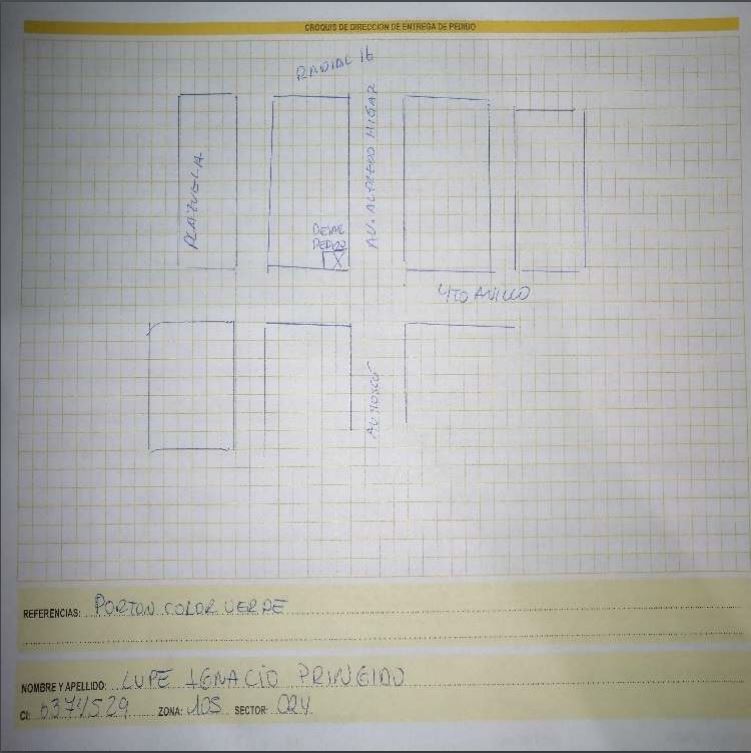 CROQUIS DE DIRECCIÓN DE ENTREGA DE PEDIDO
RADIAL 16
PLAZUELA
AV. ALFREDO HIGAR
DEJAR
PEDIDO
X
4TO ANILLO
REFERENCIAS: PORTON COLOR VERDE
NOMBRE Y APELLIDO: LUPE IGNACIO
CI: 6374529 ZONA: 105 SECTOR: 024